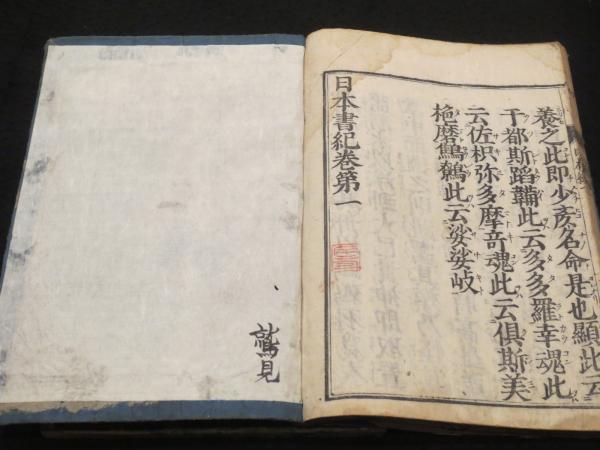 養之此即少彦名命是也顯此云
于都斯蹈鞴此云多多羅幸魂此
云佐枳弥多摩竒魂此云倶斯美
柂磨鷦鷯此云娑娑岐
日本書紀卷第一
鷲見